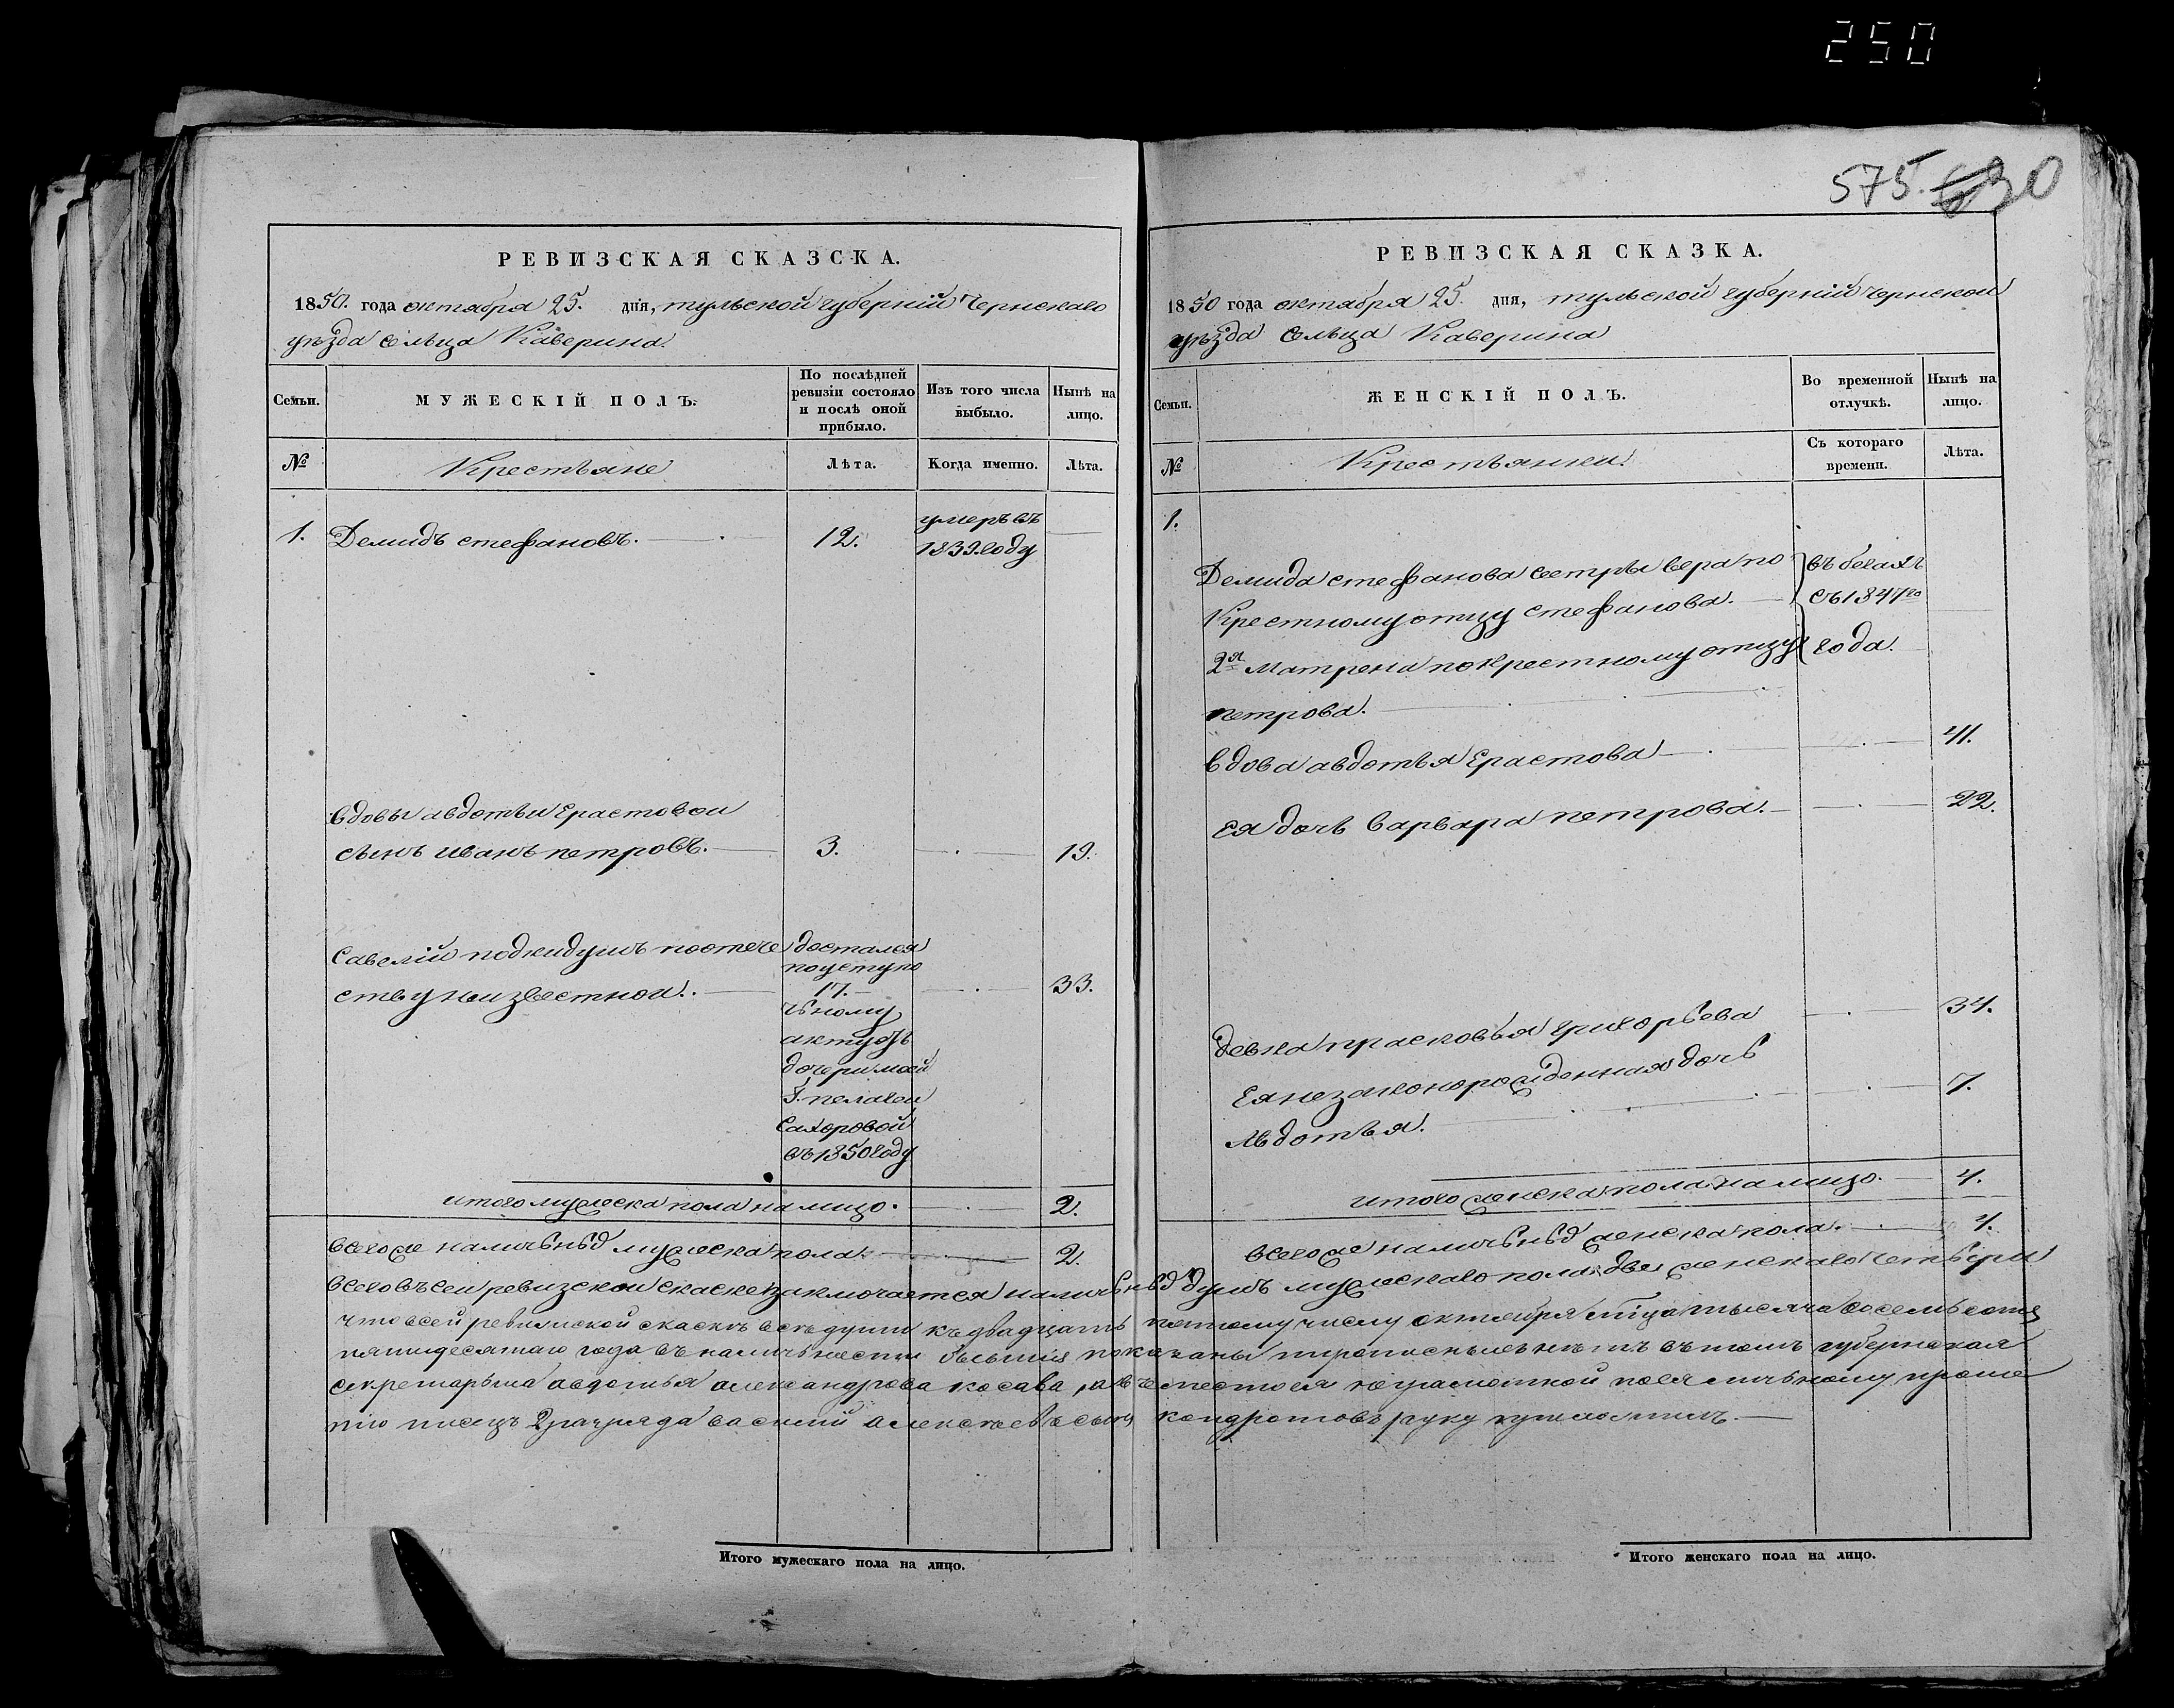 250
575. 630
РЕВИЗСКАЯ СКАЗСКА.
1850. года октября 25. дня, тульской губерній Чернскаго
уѣзда сельца Каверина.
Семьи.
МУЖЕСКІЙ ПОЛЪ.
По послѣдней
ревизіи состояло
и послѣ оной
прибыло.
Изъ того числа
выбыло.
Нынѣ на
лицо.
№
Крестьяне
Лѣта.
Когда именно.
Лѣта.
1. Демидъ стефановъ. 12.
умеръ въ
1839. году
вдовы авдотьи Ерастовои
сынъ иванъ петровъ. 3. 19.
Савелій подкидушъ поотече
ству неизвестнои. 17. 33.
достался
поуступо
чьному
акту отъ
дочери моей
Г. пелагеи
Сахоровой
въ 1850 году
итого мужеска пола на лицо. 2.
всегоже наличьныхъ мужеска пола. 2.
РЕВИЗСКАЯ СКАЗКА.
1850 года октября 25. дня, тульской губерній чернскои
уѣзда Сельца Каверина
Семьи.
ЖЕНСКІЙ ПОЛЪ.
Во временной
отлучкѣ.
Нынѣ на
лицо.
№
Крестьянки.
Съ котораго
времени.
Лѣта.
1.
Демида стефанова сестры вера по
Крестному отцу стефанова.
2я матрена покрестному отцу
петрова.
въ бегахъ
съ 1847го
года.
вдова авдотья Ерастова 41.
Ея дочь варвара петрова. 22.
девка прасковья григорьева 34.
Ея незаконорожденная дочь
Авдотья. 7.
итого женска пола на лицо. 4.
всегоже наличьныхъ женска пола. 4.
всего въсеи ревизскои скаске заключается наличьныхъ душъ мужескаго пола две женскаго четьіри
что всей ревижской скаскѣ все души къ двадцать пятому числу октября мца тысяча восемь сотъ
пятидесятаго года въ наличьности бывшия показаны и прописныхъ нѣтъ въ томъ губернская
секретарьша авдотья александрова косава, а вместо ея неграмотной поея личьному проше
нию писецъ 2 разряда василий алексѣевъ сынъ кондротовъ руку приложилъ.
Итого мужескаго пола на лицо.
Итого женскаго пола на лицо.